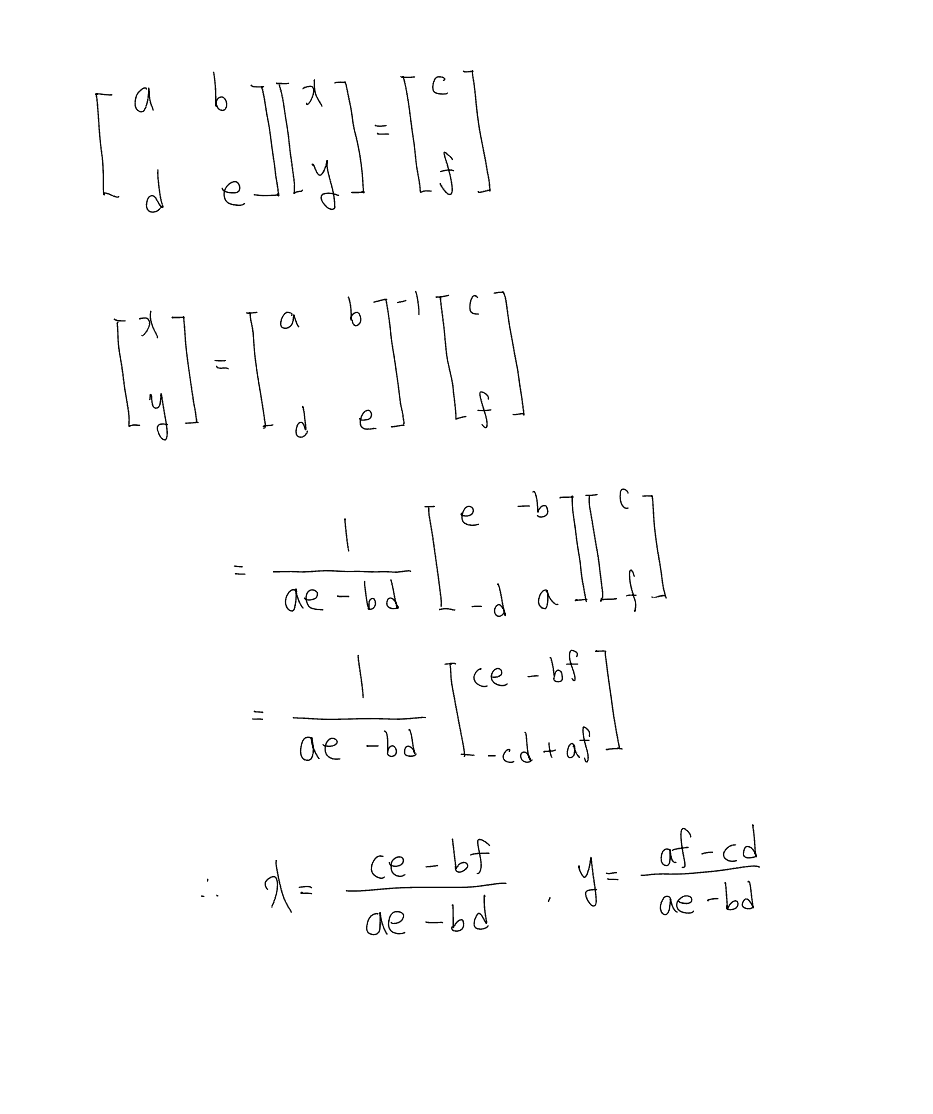 [a b; d e][x; y] = [c; f]
[x; y] = [a b; d e]^-1 [c; f]
= 1/(ae - bd) [e -b; -d a][c; f]
= 1/(ae - bd) [ce - bf; -cd + af]
∴ x = (ce - bf)/(ae - bd), y = (af - cd)/(ae - bd)